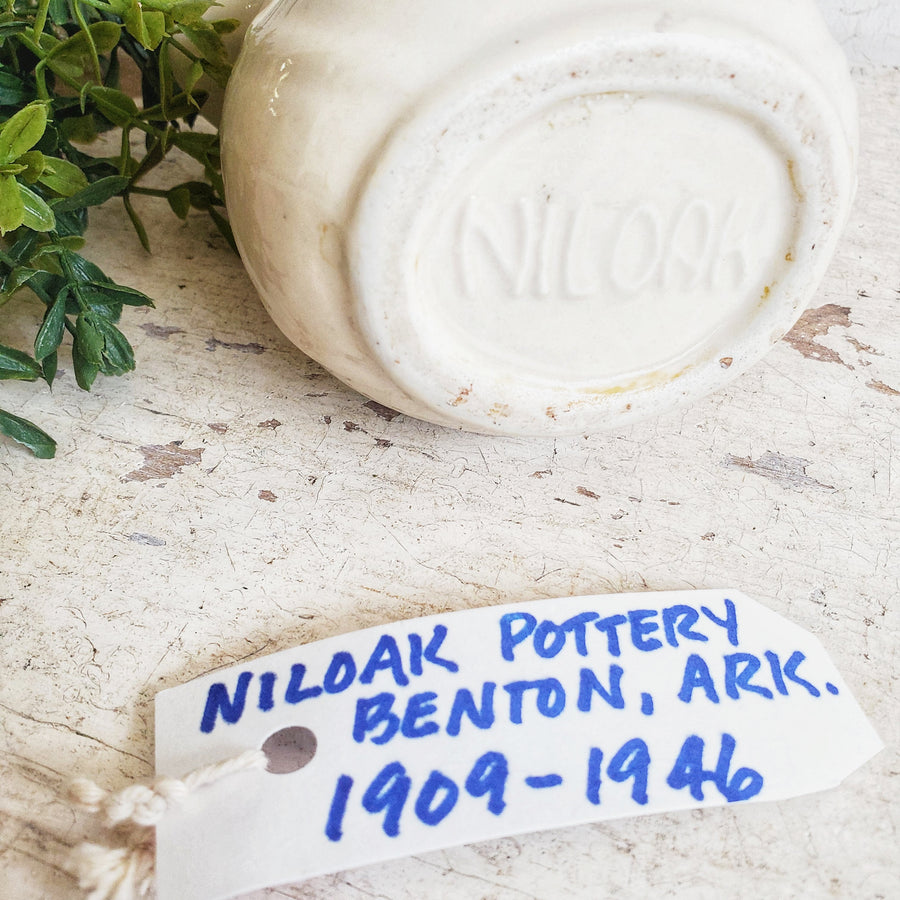 NILOAK
NILOAK POTTERY
BENTON, ARK.
1909-1946